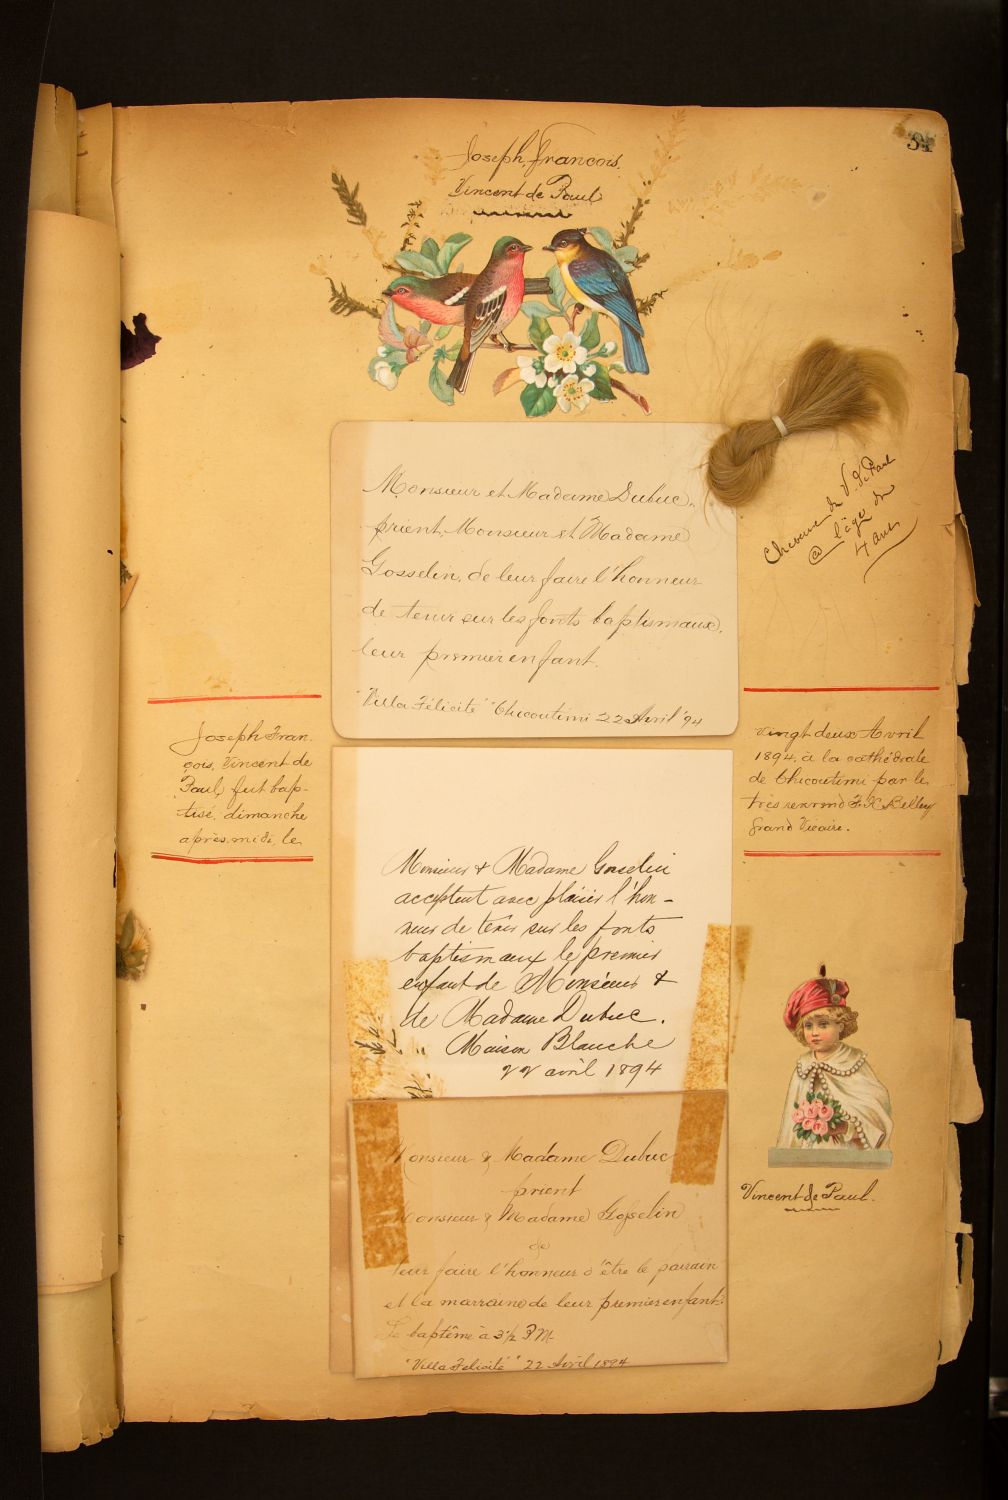 34
Joseph, François,
Vincent de Paul
Monsieur et Madame Dubuc,
prient, Monsieur et Madame
Gosselin, de leur faire l'honneur
de tenir sur les fonts baptismaux,
leur premier enfant.
"Villa Félicité" Chicoutimi 22 Avril '94
Cheveux de V. de Paul
@ l'âge de
4 ans
Joseph Fran-
çois, Vincent de
Paul, fut bap-
tisé, dimanche
après-midi, le
vingt deux Avril
1894, à la cathédrale
de Chicoutimi par le
très révérend F. X Belley
Grand Vicaire.
Monsieur & Madame Gosselin
acceptent avec plaisir l'hon-
neur de tenir sur les fonts
baptismaux le premier
enfant de Monsieur &
de Madame Dubuc.
Maison Blanche
22 avril 1894
Monsieur & Madame Dubuc
prient
Monsieur & Madame Gosselin
de
leur faire l'honneur d'être le parrain
et la marraine de leur premier enfant.
Le baptême à 3½ P.M.
"Villa Félicité" 22 Avril 1894
Vincent de Paul.